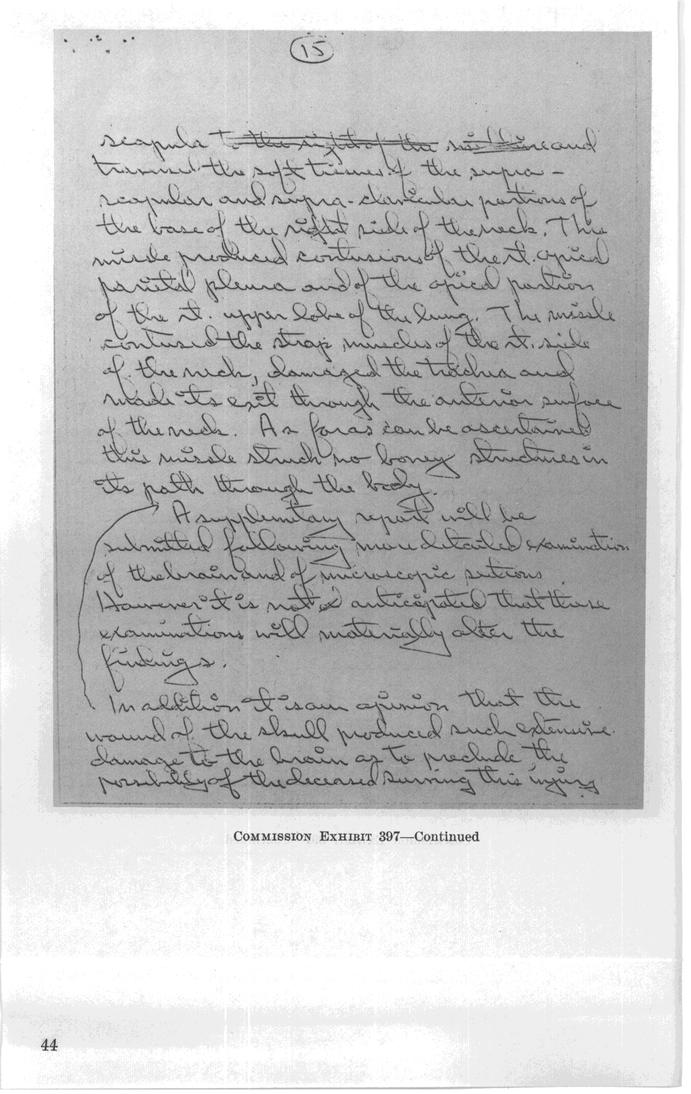 (15)
scapula to the right of the mid line and
traversed the soft tissues of the supra-
scapular and supra-clavicular portions of
the base of the right side of the neck. This
missle produced contusions of the rt. apical
parietal pleura and of the apical portion
of the rt. upper lobe of the lung. The missle
contused the strap muscles of the rt. side
of the neck, damaged the trachea and
made its exit through the anterior surface
of the neck. As far as can be ascertained
this missle struck no boney structures in
its path through the body.
A supplementary report will be
submitted following more detailed examination
of the brain and of microscopic sections.
However it is not anticipated that these
examinations will materially alter the
findings.
In addition it is our opinion that the
wound of the skull produced such extensive
damage to the brain as to preclude the
possibility of the deceased surviving this injury.
COMMISSION EXHIBIT 397—Continued
44